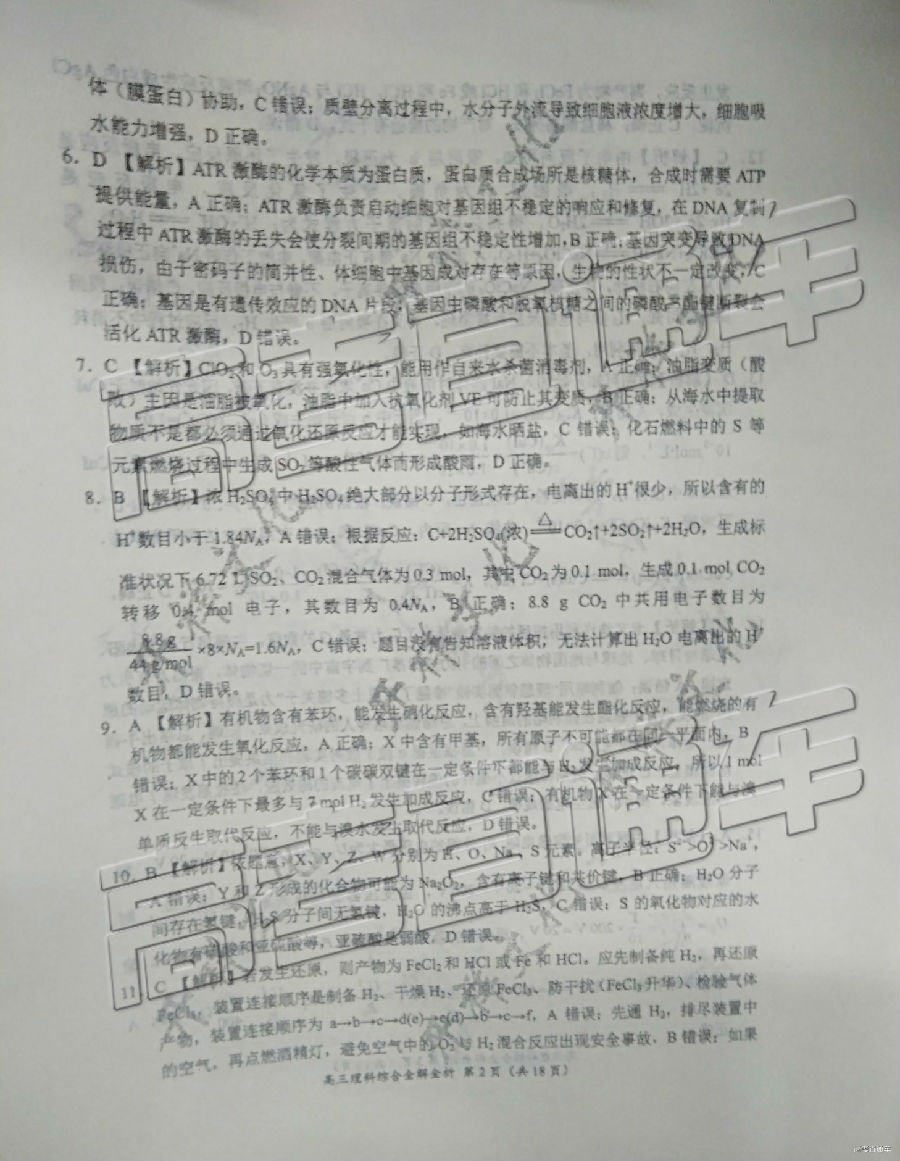 体（膜蛋白）协助，C 错误；质壁分离过程中，水分子外流导致细胞液浓度增大，细胞吸
水能力增强，D 正确。
6. D 【解析】ATR 激酶的化学本质为蛋白质，蛋白质合成场所是核糖体，合成时需要 ATP
提供能量，A 正确；ATR 激酶负责启动细胞对基因组不稳定的响应和修复，在 DNA 复制
过程中 ATR 激酶的丢失会使分裂间期的基因组不稳定性增加，B 正确；基因突变导致 DNA
损伤，由于密码子的简并性、体细胞中基因成对存在等原因，生物的性状不一定改变，C
正确；基因是有遗传效应的 DNA 片段，基因中磷酸和脱氧核糖之间的磷酸二酯键断裂会
活化 ATR 激酶，D 错误。
7. C 【解析】ClO₂ 和 O₃ 具有强氧化性，能用作自来水杀菌消毒剂，A 正确；油脂变质（酸
败）主因是油脂被氧化，油脂中加入抗氧化剂 VE 可防止其变质，B 正确；从海水中提取
物质不是都必须通过氧化还原反应才能实现，如海水晒盐，C 错误；化石燃料中的 S 等
元素燃烧过程中生成 SO₂ 等酸性气体而形成酸雨，D 正确。
8. B 【解析】浓 H₂SO₄ 中 H₂SO₄ 绝大部分以分子形式存在，电离出的 H⁺很少，所以含有的
H⁺数目小于 1.84Nₐ，A 错误；根据反应：C+2H₂SO₄(浓)══△══CO₂↑+2SO₂↑+2H₂O，生成标
准状况下 6.72 L SO₂、CO₂ 混合气体为 0.3 mol，其中 CO₂ 为 0.1 mol，生成 0.1 mol CO₂
转移 0.4 mol 电子，其数目为 0.4Nₐ，B 正确；8.8 g CO₂ 中共用电子数目为
8.8 g/44 g/mol ×8×Nₐ=1.6Nₐ，C 错误；题目没有告知溶液体积，无法计算出 H₂O 电离出的 H⁺
数目，D 错误。
9. A 【解析】有机物含有苯环，能发生硝化反应，含有羟基能发生酯化反应，能燃烧的有
机物都能发生氧化反应，A 正确；X 中含有甲基，所有原子不可能都在同一平面内，B
错误；X 中的 2 个苯环和 1 个碳碳双键在一定条件下都能与 H₂ 发生加成反应，所以 1 mol
X 在一定条件下最多与 7 mol H₂ 发生加成反应，C 错误；有机物 X 在一定条件下能与溴
单质反生取代反应，不能与溴水发生取代反应，D 错误。
10. B 【解析】依题意，X、Y、Z、W 分别为 H、O、Na、S 元素。离子半径：S²⁻>O²⁻>Na⁺，
A 错误；Y 和 Z 形成的化合物可能为 Na₂O₂，含有离子键和共价键，B 正确；H₂O 分子
间存在氢键，H₂S 分子间无氢键，H₂O 的沸点高于 H₂S，C 错误；S 的氧化物对应的水
化物有硫酸和亚硫酸等，亚硫酸是弱酸，D 错误。
11. C 【解析】若发生还原，则产物为 FeCl₂ 和 HCl 或 Fe 和 HCl。应先制备纯 H₂，再还原
FeCl₃，装置连接顺序是制备 H₂、干燥 H₂、还原 FeCl₃、防干扰（FeCl₃ 升华）、检验气体
产物，装置连接顺序为 a→b→c→d(e)→e(d)→b→c→f，A 错误；先通 H₂，排尽装置中
的空气，再点燃酒精灯，避免空气中的 O₂ 与 H₂ 混合反应出现安全事故，B 错误；如果
高三理科综合全解全析 第 2 页（共 18 页）
高考直通车
高考直通车